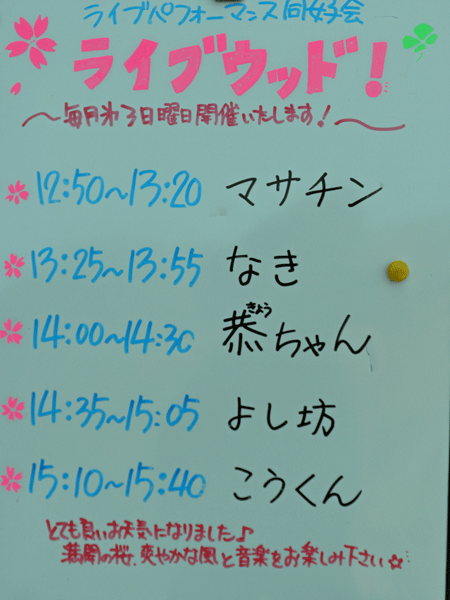 ライブパフォーマンス同好会
ライブウッド!
~毎月第3日曜日開催いたします!~
12:50~13:20 マサチン
13:25~13:55 なき
14:00~14:30 恭ちゃん
きょう
14:35~15:05 よし坊
15:10~15:40 こうくん
とても良いお天気になりました♪
満開の桜、爽やかな風と音楽をお楽しみ下さい☆